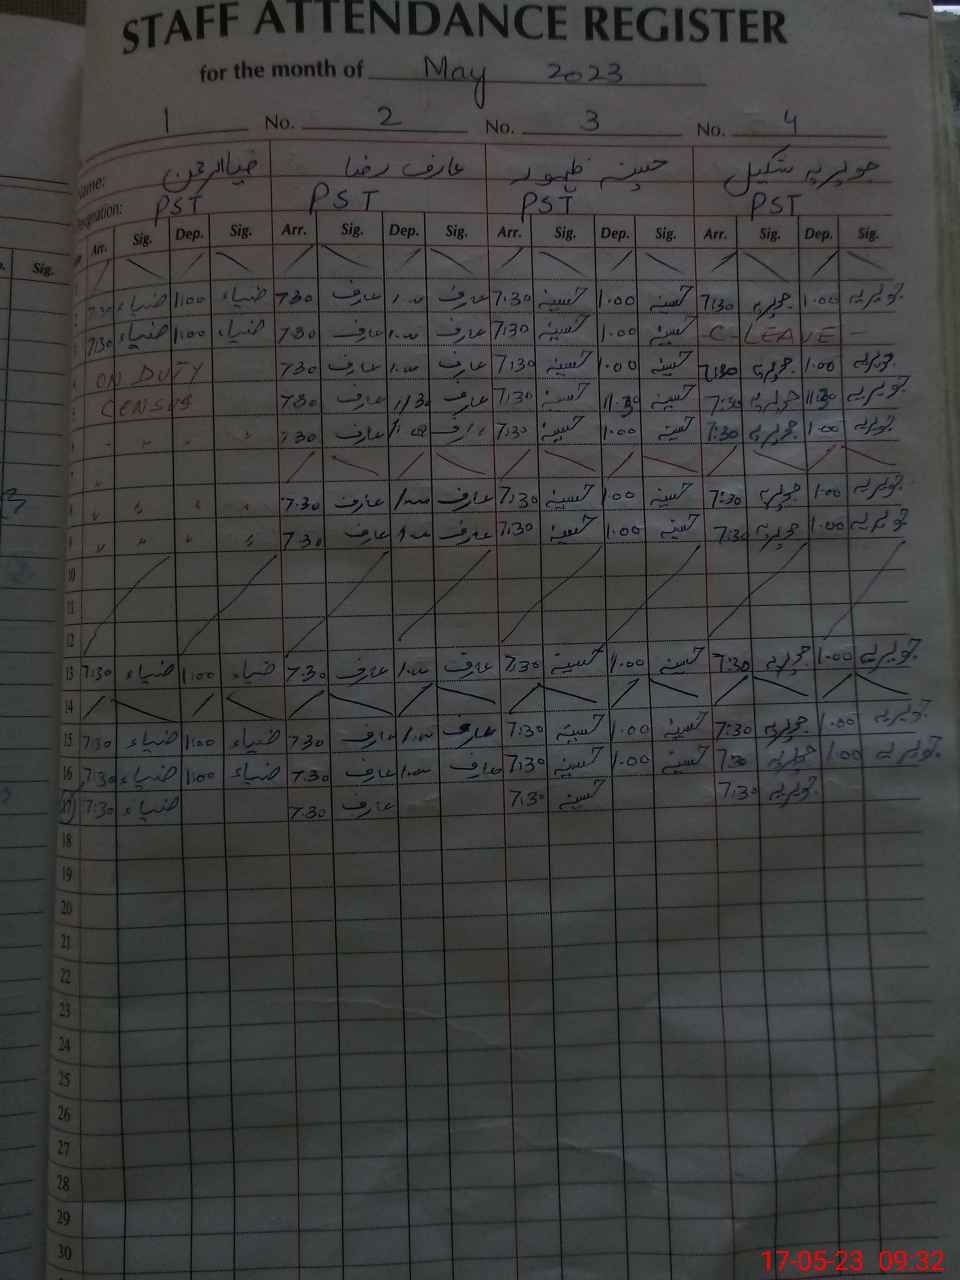 STAFF ATTENDANCE REGISTER
for the month of May 2023
1 No. 2 No. 3 No. 4
Name: ضیاالرحمن عارف رضا حسینہ ظہور جویریہ شکیل
PST PST PST PST
Arr. Sig. Dep. Sig. Arr. Sig. Dep. Sig. Arr. Sig. Dep. Sig. Arr. Sig. Dep. Sig.
Sig.
2 7:30 ضیاء 1:00 ضیاء 7:30 عارف 1:00 عارف 7:30 حسینہ 1:00 حسینہ 7:30 جویریہ 1:00 جویریہ
3 7:30 ضیاء 1:00 ضیاء 7:30 عارف 1:00 عارف 7:30 حسینہ 1:00 حسینہ C-LEAVE -
4 ON DUTY 7:30 عارف 1:00 عارف 7:30 حسینہ 1:00 حسینہ 7:30 جویریہ 1:00 جویریہ
5 CENSUS 7:30 عارف 11:30 عارف 7:30 حسینہ 11:30 حسینہ 7:30 جویریہ 11:30 جویریہ
6 " " " " 7:30 عارف 1:00 عارف 7:30 حسینہ 1:00 حسینہ 7:30 جویریہ 1:00 جویریہ
7 "
8 " " " " 7:30 عارف 1:00 عارف 7:30 حسینہ 1:00 حسینہ 7:30 جویریہ 1:00 جویریہ
9 " " " " 7:30 عارف 1:00 عارف 7:30 حسینہ 1:00 حسینہ 7:30 جویریہ 1:00 جویریہ
10
11
12
13 7:30 ضیاء 1:00 ضیاء 7:30 عارف 1:00 عارف 7:30 حسینہ 1:00 حسینہ 7:30 جویریہ 1:00 جویریہ
14
15 7:30 ضیاء 1:00 ضیاء 7:30 عارف 1:00 عارف 7:30 حسینہ 1:00 حسینہ 7:30 جویریہ 1:00 جویریہ
16 7:30 ضیاء 1:00 ضیاء 7:30 عارف 1:00 عارف 7:30 حسینہ 1:00 حسینہ 7:30 جویریہ 1:00 جویریہ
17 7:30 ضیاء 7:30 عارف 7:30 حسینہ 7:30 جویریہ
18
19
20
21
22
23
24
25
26
27
28
29
30
17-05-23 09:32